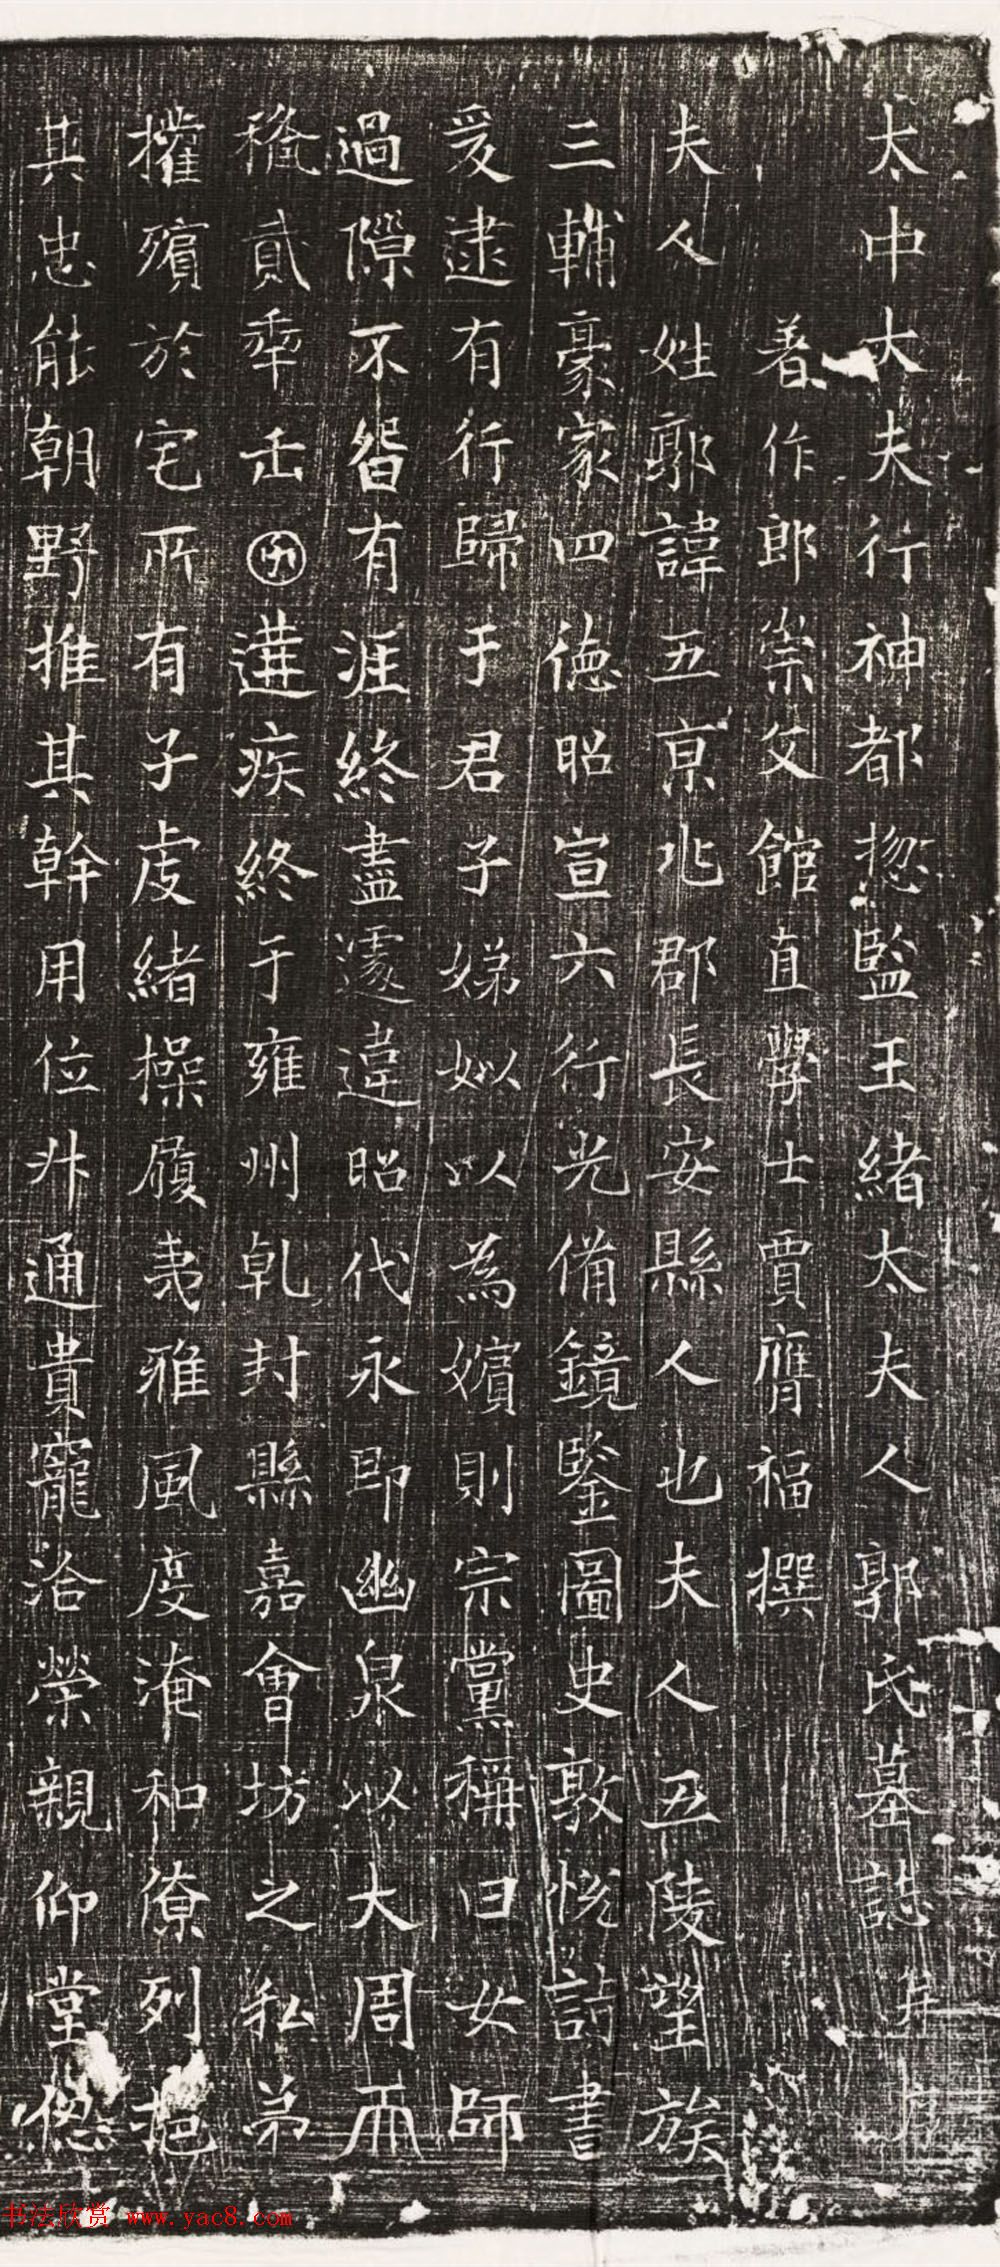 太中大夫行神都惣監王緒太夫人郭氏墓誌并序
著作郎崇文館直學士賈膺福撰
夫人姓郭諱五京兆郡長安縣人也夫人五陵望族
三輔豪家四德昭宣六行光備鏡鑒圖史敦悅詩書
爰逮有行歸于君子娣姒以為嬪則宗黨稱曰女師
過隙不留有涯終盡遽違昭代永即幽泉以大周而
穐貳秊缶遘疾終于雍州乹封縣嘉會坊之私弟
權殯於宅所有子虔緒操履夷雅風度淹和僚列挹
其忠能朝野推其幹用位升通貴寵洽榮親仰堂
书法欣赏 www.yac8.com